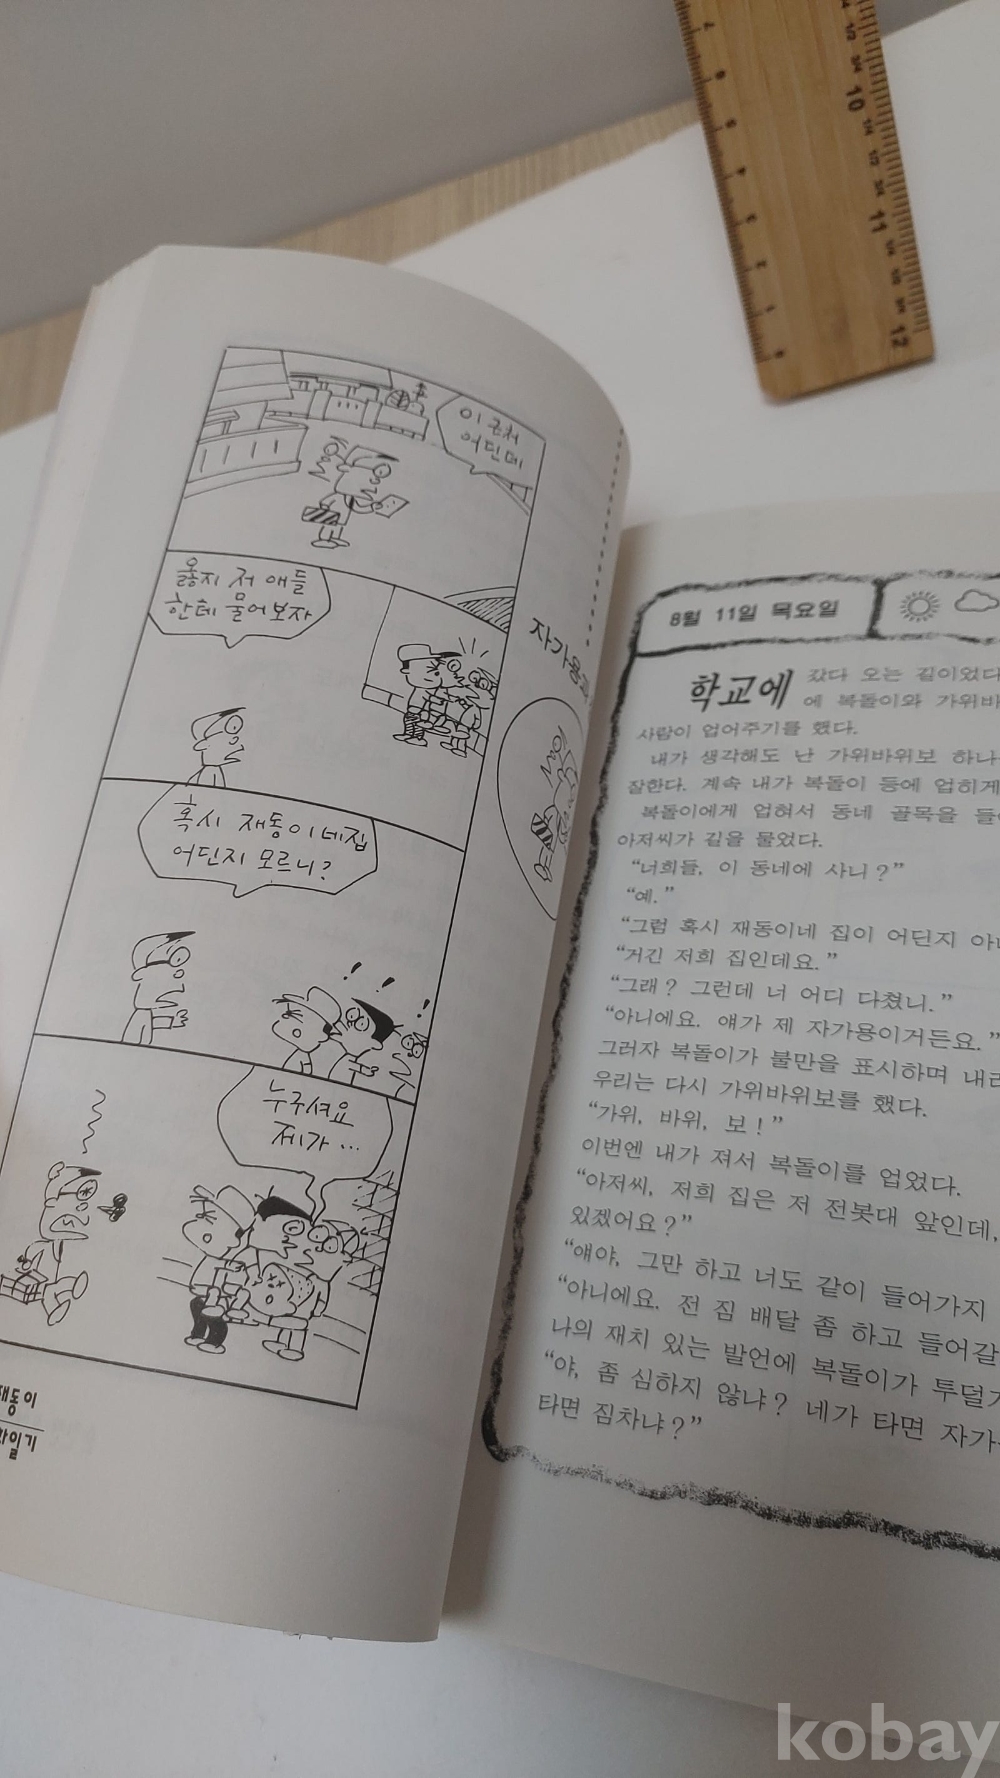 이 근처
어딘데
옳지 저 애들
한테 물어보자
혹시 재동이네집
어딘지 모르니?
누구셔요
제가 ...
재동이
자가용과
8월 11일 목요일
학교에 갔다 오는 길이었다
에 복돌이와 가위바
사람이 업어주기를 했다.
내가 생각해도 난 가위바위보 하나
잘한다. 계속 내가 복돌이 등에 업히게
복돌이에게 업혀서 동네 골목을 들
아저씨가 길을 물었다.
“너희들, 이 동네에 사니?”
“예.”
“그럼 혹시 재동이네 집이 어딘지 아
“거긴 저희 집인데요.”
“그래? 그런데 너 어디 다쳤니.”
“아니에요. 얘가 제 자가용이거든요.”
그러자 복돌이가 불만을 표시하며 내
우리는 다시 가위바위보를 했다.
“가위, 바위, 보!”
이번엔 내가 져서 복돌이를 업었다.
“아저씨, 저희 집은 저 전봇대 앞인데,
있겠어요?”
“얘야, 그만 하고 너도 같이 들어가지
“아니에요. 전 짐 배달 좀 하고 들어갈
나의 재치 있는 발언에 복돌이가 투덜
“야, 좀 심하지 않냐? 네가 타면 자가
타면 짐차냐?”
kobay
10
11
12